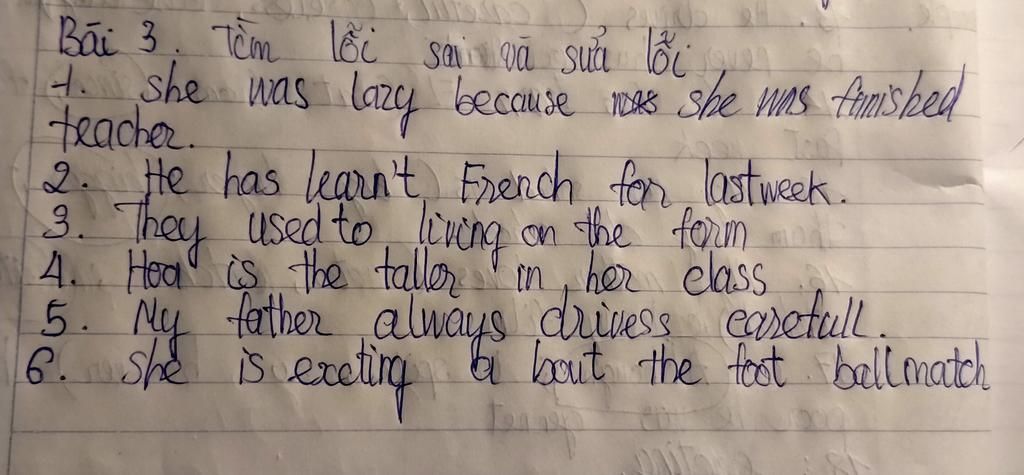 Bài 3. Tìm lỗi sai và sửa lỗi
1. She was lazy because was she was finished
teacher.
2. He has learn't French for lastweek.
3. They used to living on the farm
4. Hoa is the taller in her class
5. My father always drivess carefull.
6. She is excting a bout the foot ball match